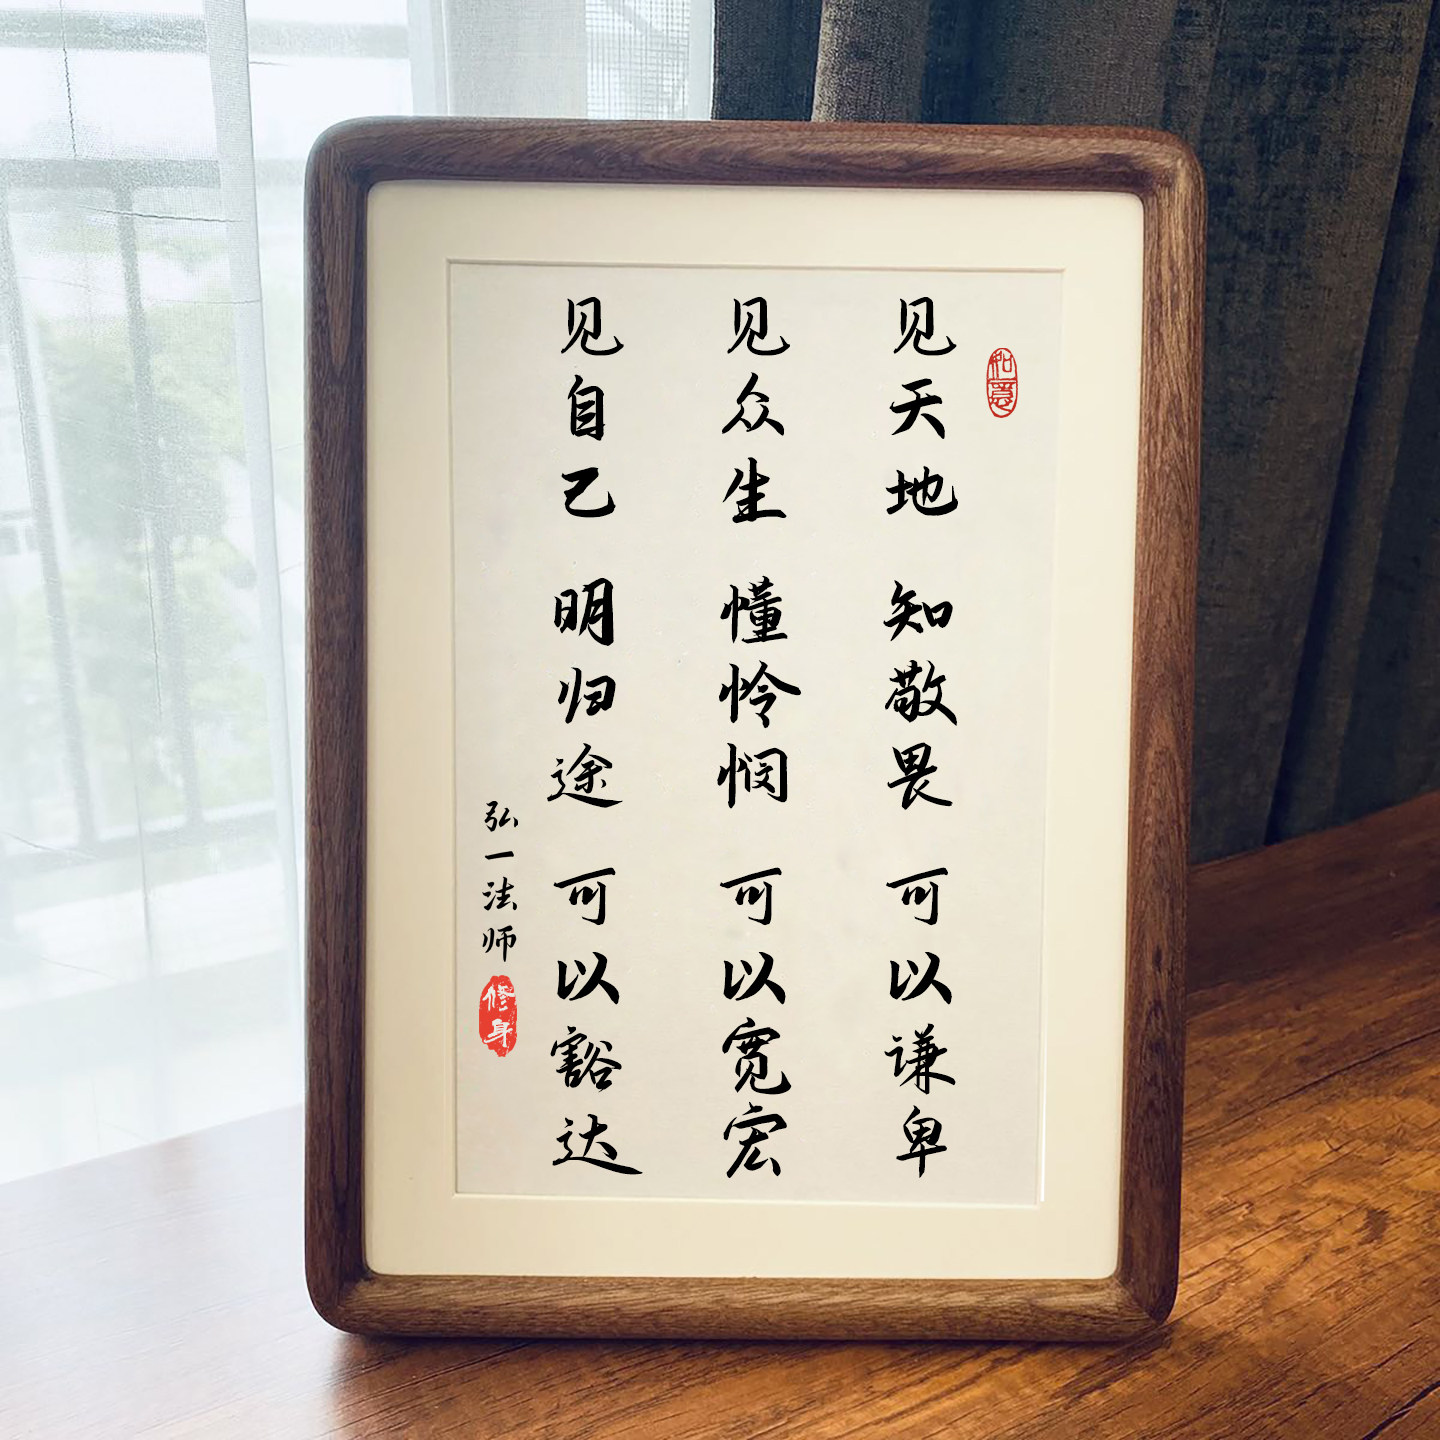 如意
见天地 知敬畏 可以谦卑
见众生 懂怜悯 可以宽宏
见自己 明归途 可以豁达
弘一法师
修身